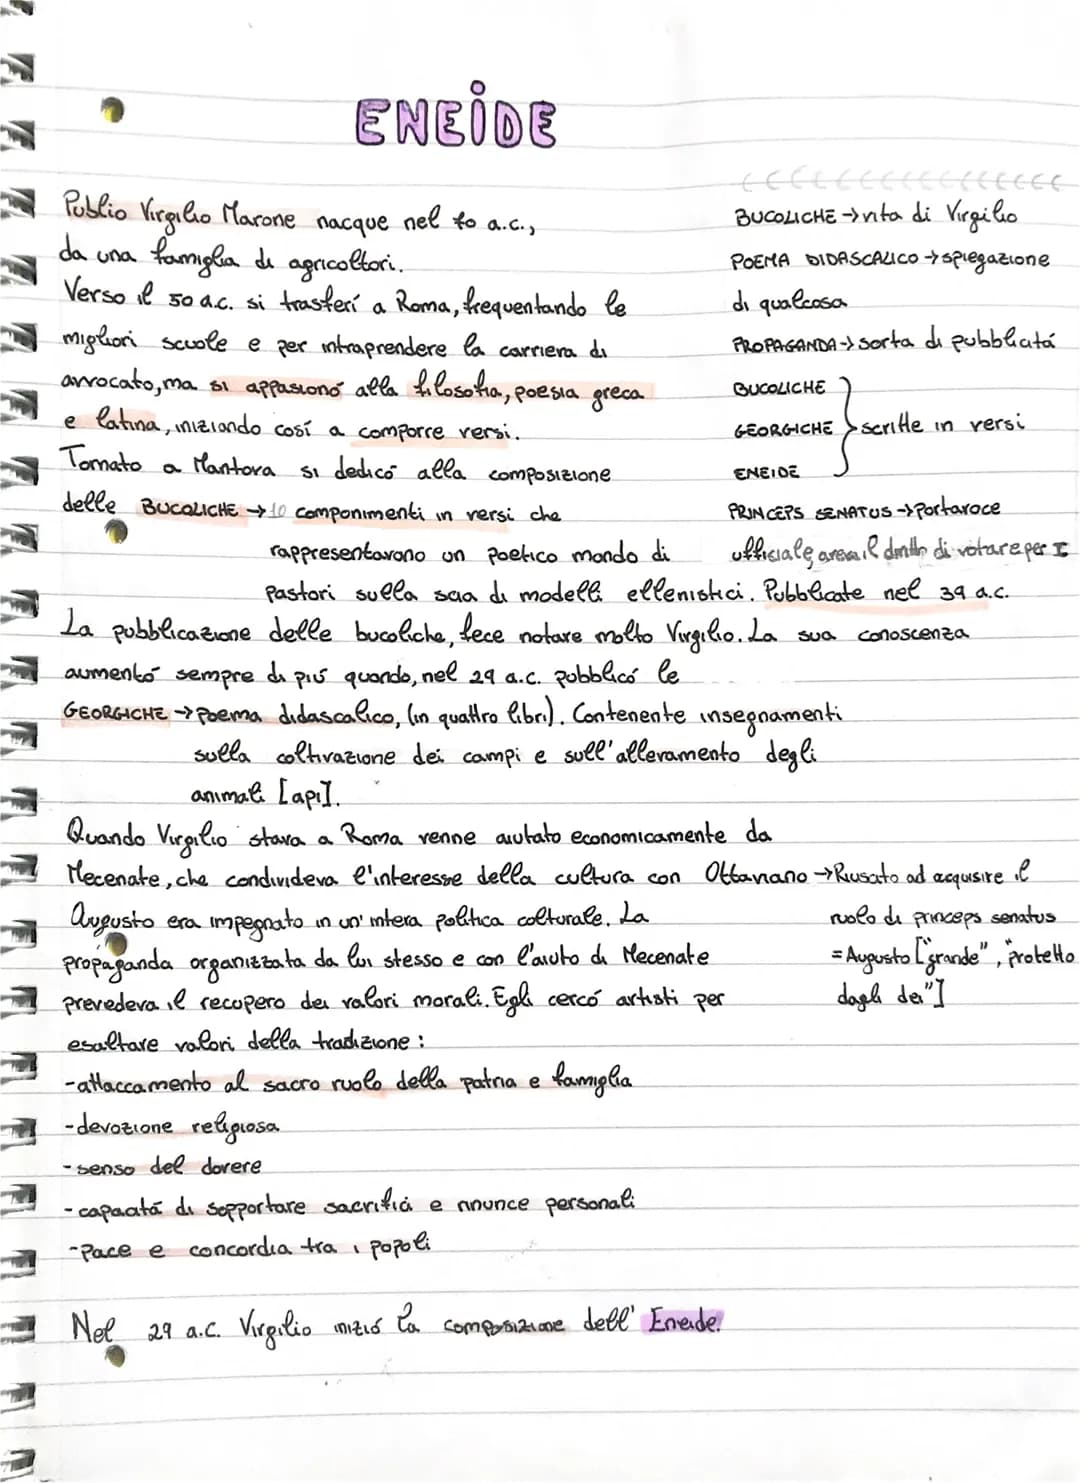 ENEIDE
Publio Virgilio Marone nacque nel 70 a.c.,
da una famiglia di agricoltori.
Verso il 50 a.c. si trasferí a Roma, frequentando le
migliori scuole e per intraprendere la carriera di
avvocato, ma si appasionó alla filosofia, poesia greca
e latina, iniziando cosí a comporre versi.
Tornato a Mantova si dedicó alla composizione
delle BUCOLICHE → 10 componimenti in versi che
rappresentavano un poetico mondo di
pastori sulla scia di modelli ellenistici. Pubblicate nel 39 a.c.
BUCOLICHE → vita di Virgilio
POEMA DIDASCALICO → spiegazione
di qualcosa
PROPAGANDA → sorta di pubblicitá
BUCOLICHE
GEORGICHE } scritte in versi
ENEIDE
PRINCEPS SENATUS → portavoce
ufficiale, aveva il diritto di votare per I
La pubblicazione delle bucoliche, fece notare molto Virgilio. La sua conoscenza
aumentó sempre di piú quando, nel 29 a.c. pubblicó le
GEORGICHE → poema didascalico, (in quattro libri). Contenente insegnamenti
sulla coltivazione dei campi e sull'allevamento degli
animali [api].
Quando Virgilio stava a Roma venne aiutato economicamente da
Mecenate, che condivideva l'interesse della cultura con Ottaviano → Riusato ad acquisire il
Augusto era impegnato in un' intera politica colturale. La
propaganda organizzata da lui stesso e con l'aiuto di Mecenate
prevedeva il recupero dei valori morali. Egli cercó artisti per
esaltare valori della tradizione:
ruolo di princeps senatus
= Augusto ["grande", "protetto
dagli dei"]
-attaccamento al sacro ruolo della patria e famiglia
-devozione religiosa
-senso del dovere
-capacitá di sopportare sacrifici e rinunce personali
-pace e concordia tra i popoli
Nel 29 a.c. Virgilio iniziò la composizione dell' Eneide.